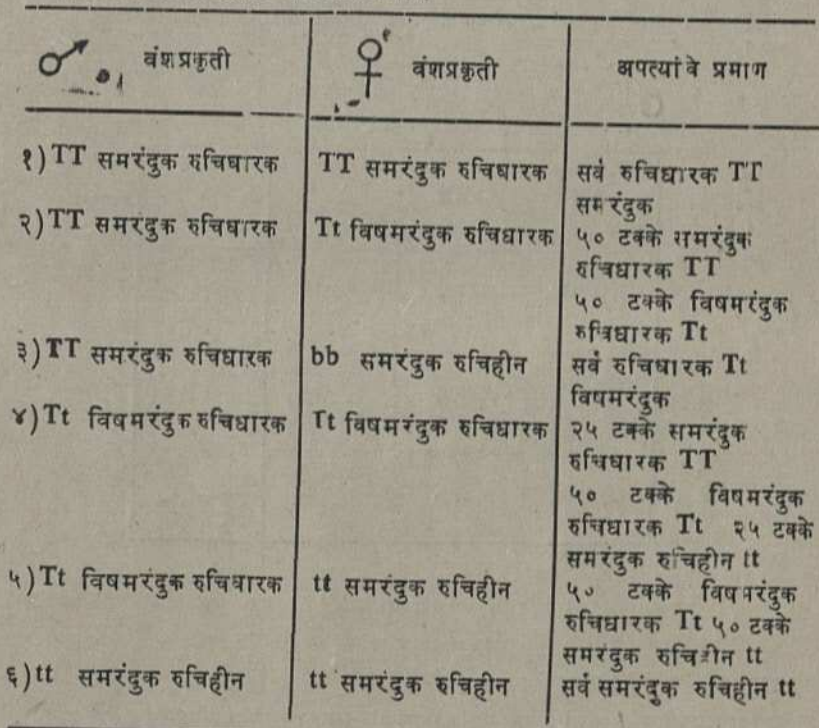 ♂ वंशप्रकृती ♀ वंशप्रकृती अपत्यांचे प्रमाण
१) TT समरंदुक रुचिधारक TT समरंदुक रुचिधारक सर्व रुचिधारक TT
समरंदुक
२) TT समरंदुक रुचिधारक Tt विषमरंदुक रुचिधारक ५० टक्के समरंदुक
रुचिधारक TT
५० टक्के विषमरंदुक
रुचिधारक Tt
३) TT समरंदुक रुचिधारक bb समरंदुक रुचिहीन सर्व रुचिधारक Tt
विषमरंदुक
४) Tt विषमरंदुक रुचिधारक Tt विषमरंदुक रुचिधारक २५ टक्के समरंदुक
रुचिधारक TT
५० टक्के विषमरंदुक
रुचिधारक Tt २५ टक्के
समरंदुक रुचिहीन tt
५) Tt विषमरंदुक रुचिधारक tt समरंदुक रुचिहीन ५० टक्के विषमरंदुक
रुचिधारक Tt ५० टक्के
समरंदुक रुचिहीन tt
६) tt समरंदुक रुचिहीन tt समरंदुक रुचिहीन सर्व समरंदुक रुचिहीन tt